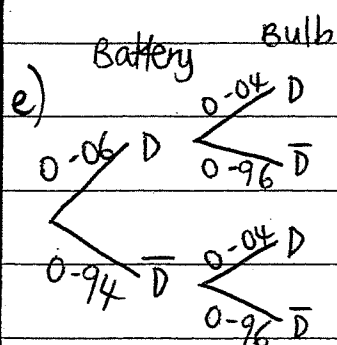 Battery Bulb
e)
0-04 D
0-06 D
0-96 D̅
0-04 D
0-94 D̅
0-96 D̅